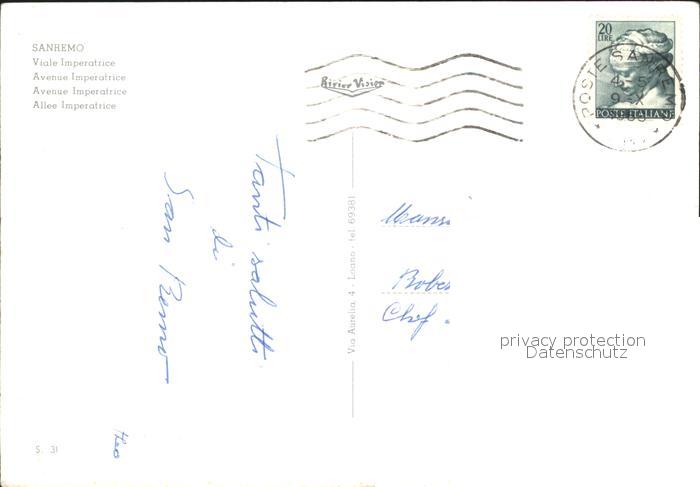 SANREMO
Viale Imperatrice
Avenue Imperatrice
Avenue Imperatrice
Allee Imperatrice
20
LIRE
POSTE ITALIANE
POSTE SANR
Tanti saluti
di
San Remo
Via Aurelia, 4 - Loano - tel 69381
Chef.
privacy protection
Datenschutz
S. 31